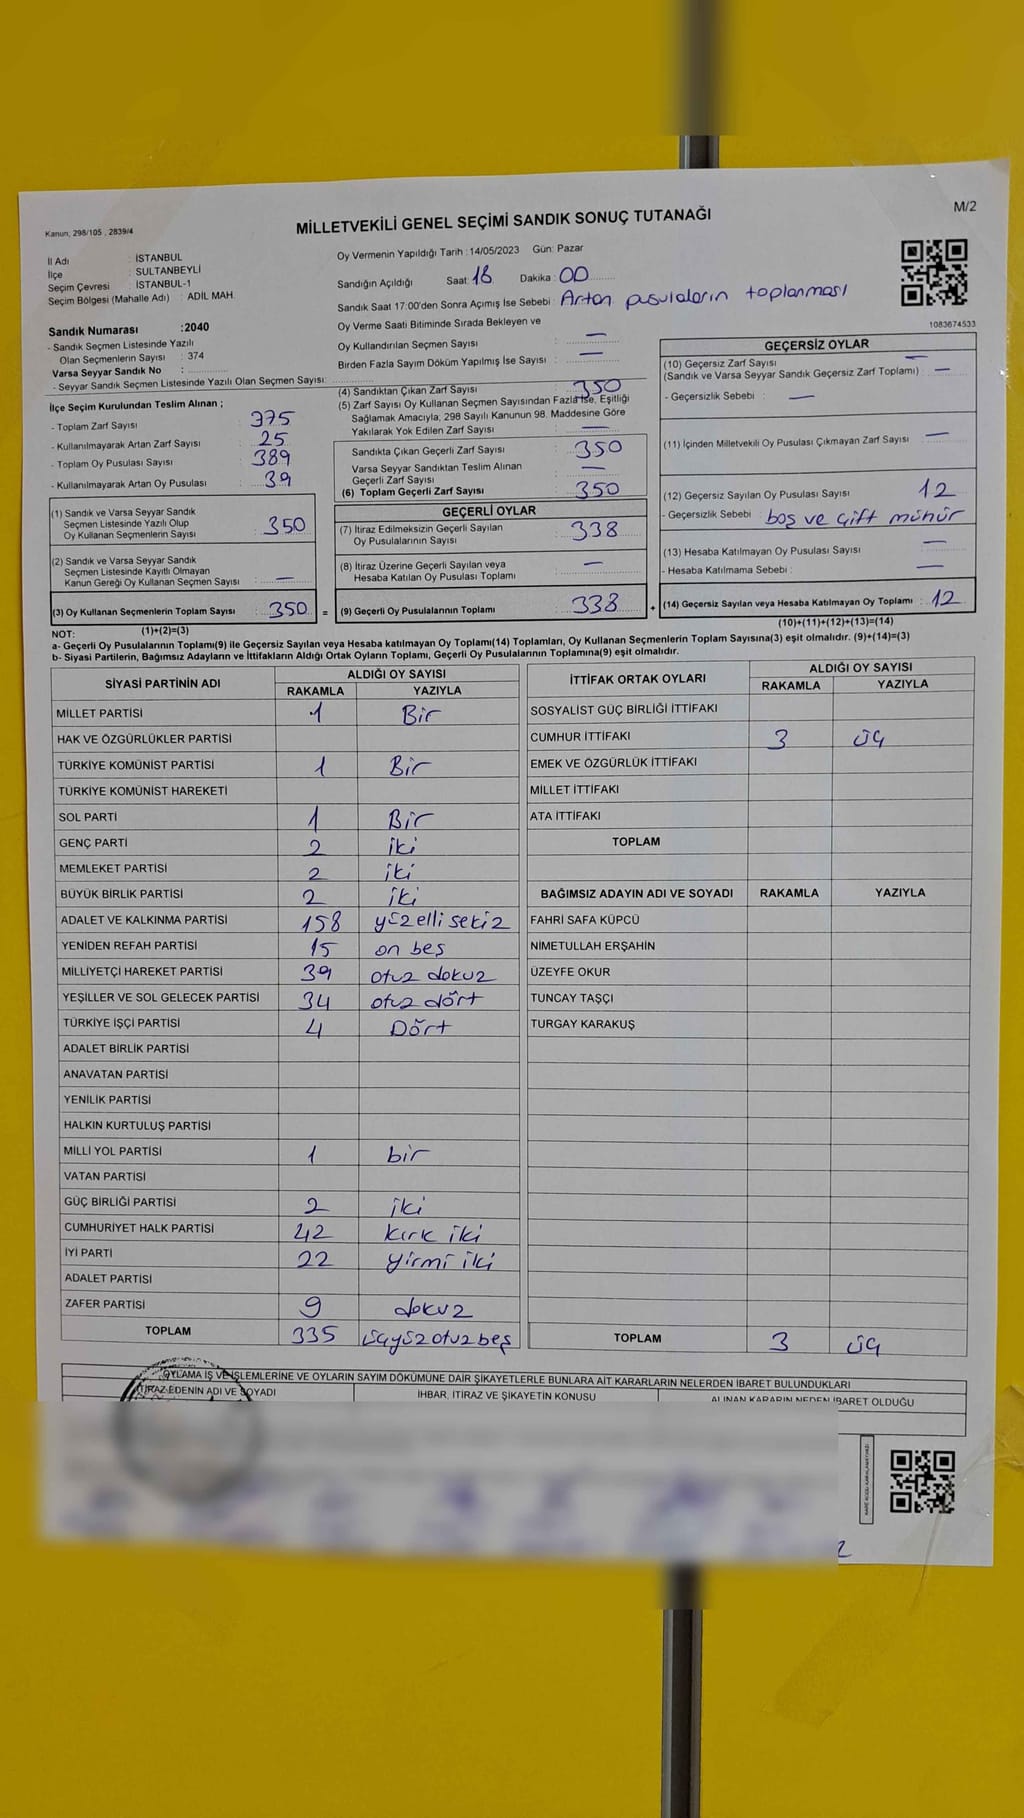 Kanun, 298/105 , 2839/4
MİLLETVEKİLİ GENEL SEÇİMİ SANDIK SONUÇ TUTANAĞI
M/2
İl Adı : İSTANBUL
İlçe : SULTANBEYLİ
Seçim Çevresi : İSTANBUL-1
Seçim Bölgesi (Mahalle Adı) : ADİL MAH.
Oy Vermenin Yapıldığı Tarih : 14/05/2023 Gün: Pazar
Sandığın Açıldığı Saat: 18 Dakika: 00
Sandık Saat 17:00'den Sonra Açımış İse Sebebi : Artan pusulaların toplanması
Oy Verme Saati Bitiminde Sırada Bekleyen ve
Oy Kullandırılan Seçmen Sayısı : —
Birden Fazla Sayım Döküm Yapılmış İse Sayısı : —
1083674533
Sandık Numarası : 2040
- Sandık Seçmen Listesinde Yazılı
Olan Seçmenlerin Sayısı : 374
Varsa Seyyar Sandık No :
- Seyyar Sandık Seçmen Listesinde Yazılı Olan Seçmen Sayısı:
İlçe Seçim Kurulundan Teslim Alınan ;
- Toplam Zarf Sayısı : 375
- Kullanılmayarak Artan Zarf Sayısı : 25
- Toplam Oy Pusulası Sayısı : 389
- Kullanılmayarak Artan Oy Pusulası : 39
(1) Sandık ve Varsa Seyyar Sandık
Seçmen Listesinde Yazılı Olup
Oy Kullanan Seçmenlerin Sayısı : 350
(2) Sandık ve Varsa Seyyar Sandık
Seçmen Listesinde Kayıtlı Olmayan
Kanun Gereği Oy Kullanan Seçmen Sayısı : —
(3) Oy Kullanan Seçmenlerin Toplam Sayısı : 350 =
(1)+(2)=(3)
(4) Sandıktan Çıkan Zarf Sayısı : 350
(5) Zarf Sayısı Oy Kullanan Seçmen Sayısından Fazla İse, Eşitliği
Sağlamak Amacıyla, 298 Sayılı Kanunun 98. Maddesine Göre
Yakılarak Yok Edilen Zarf Sayısı : —
Sandıkta Çıkan Geçerli Zarf Sayısı : 350
Varsa Seyyar Sandıktan Teslim Alınan
Geçerli Zarf Sayısı : —
(6) Toplam Geçerli Zarf Sayısı : 350
GEÇERLİ OYLAR
(7) İtiraz Edilmeksizin Geçerli Sayılan
Oy Pusulalarının Sayısı : 338
(8) İtiraz Üzerine Geçerli Sayılan veya
Hesaba Katılan Oy Pusulası Toplamı : —
(9) Geçerli Oy Pusulalarının Toplamı : 338 +
GEÇERSİZ OYLAR
(10) Geçersiz Zarf Sayısı : —
(Sandık ve Varsa Seyyar Sandık Geçersiz Zarf Toplamı) : —
- Geçersizlik Sebebi : —
(11) İçinden Milletvekili Oy Pusulası Çıkmayan Zarf Sayısı : —
(12) Geçersiz Sayılan Oy Pusulası Sayısı : 12
- Geçersizlik Sebebi : boş ve çift mühür
(13) Hesaba Katılmayan Oy Pusulası Sayısı : —
- Hesaba Katılmama Sebebi : —
(14) Geçersiz Sayılan veya Hesaba Katılmayan Oy Toplamı : 12
(10)+(11)+(12)+(13)=(14)
NOT:
a- Geçerli Oy Pusulalarının Toplamı(9) ile Geçersiz Sayılan veya Hesaba katılmayan Oy Toplamı(14) Toplamları, Oy Kullanan Seçmenlerin Toplam Sayısına(3) eşit olmalıdır. (9)+(14)=(3)
b- Siyasi Partilerin, Bağımsız Adayların ve İttifakların Aldığı Ortak Oyların Toplamı, Geçerli Oy Pusulalarının Toplamına(9) eşit olmalıdır.
SİYASİ PARTİNİN ADI ALDIĞI OY SAYISI
RAKAMLA YAZIYLA
MİLLET PARTİSİ 1 Bir
HAK VE ÖZGÜRLÜKLER PARTİSİ
TÜRKİYE KOMÜNİST PARTİSİ 1 Bir
TÜRKİYE KOMÜNİST HAREKETİ
SOL PARTİ 1 Bir
GENÇ PARTİ 2 iki
MEMLEKET PARTİSİ 2 iki
BÜYÜK BİRLİK PARTİSİ 2 iki
ADALET VE KALKINMA PARTİSİ 158 yüzellisekiz
YENİDEN REFAH PARTİSİ 15 on beş
MİLLİYETÇİ HAREKET PARTİSİ 39 otuz dokuz
YEŞİLLER VE SOL GELECEK PARTİSİ 34 otuz dört
TÜRKİYE İŞÇİ PARTİSİ 4 Dört
ADALET BİRLİK PARTİSİ
ANAVATAN PARTİSİ
YENİLİK PARTİSİ
HALKIN KURTULUŞ PARTİSİ
MİLLİ YOL PARTİSİ 1 bir
VATAN PARTİSİ
GÜÇ BİRLİĞİ PARTİSİ 2 iki
CUMHURİYET HALK PARTİSİ 42 kırk iki
İYİ PARTİ 22 yirmi iki
ADALET PARTİSİ
ZAFER PARTİSİ 9 dokuz
TOPLAM 335 üçyüzotuzbeş
İTTİFAK ORTAK OYLARI ALDIĞI OY SAYISI
RAKAMLA YAZIYLA
SOSYALİST GÜÇ BİRLİĞİ İTTİFAKI
CUMHUR İTTİFAKI 3 üç
EMEK VE ÖZGÜRLÜK İTTİFAKI
MİLLET İTTİFAKI
ATA İTTİFAKI
TOPLAM
BAĞIMSIZ ADAYIN ADI VE SOYADI RAKAMLA YAZIYLA
FAHRİ SAFA KÜPCÜ
NİMETULLAH ERŞAHİN
ÜZEYFE OKUR
TUNCAY TAŞÇI
TURGAY KARAKUŞ
TOPLAM 3 üç
OYLAMA İŞ VE İŞLEMLERİNE VE OYLARIN SAYIM DÖKÜMÜNE DAİR ŞİKAYETLERLE BUNLARA AİT KARARLARIN NELERDEN İBARET BULUNDUKLARI
İTİRAZ EDENİN ADI VE SOYADI İHBAR, İTİRAZ VE ŞİKAYETİN KONUSU ALINAN KARARIN NEDEN İBARET OLDUĞU